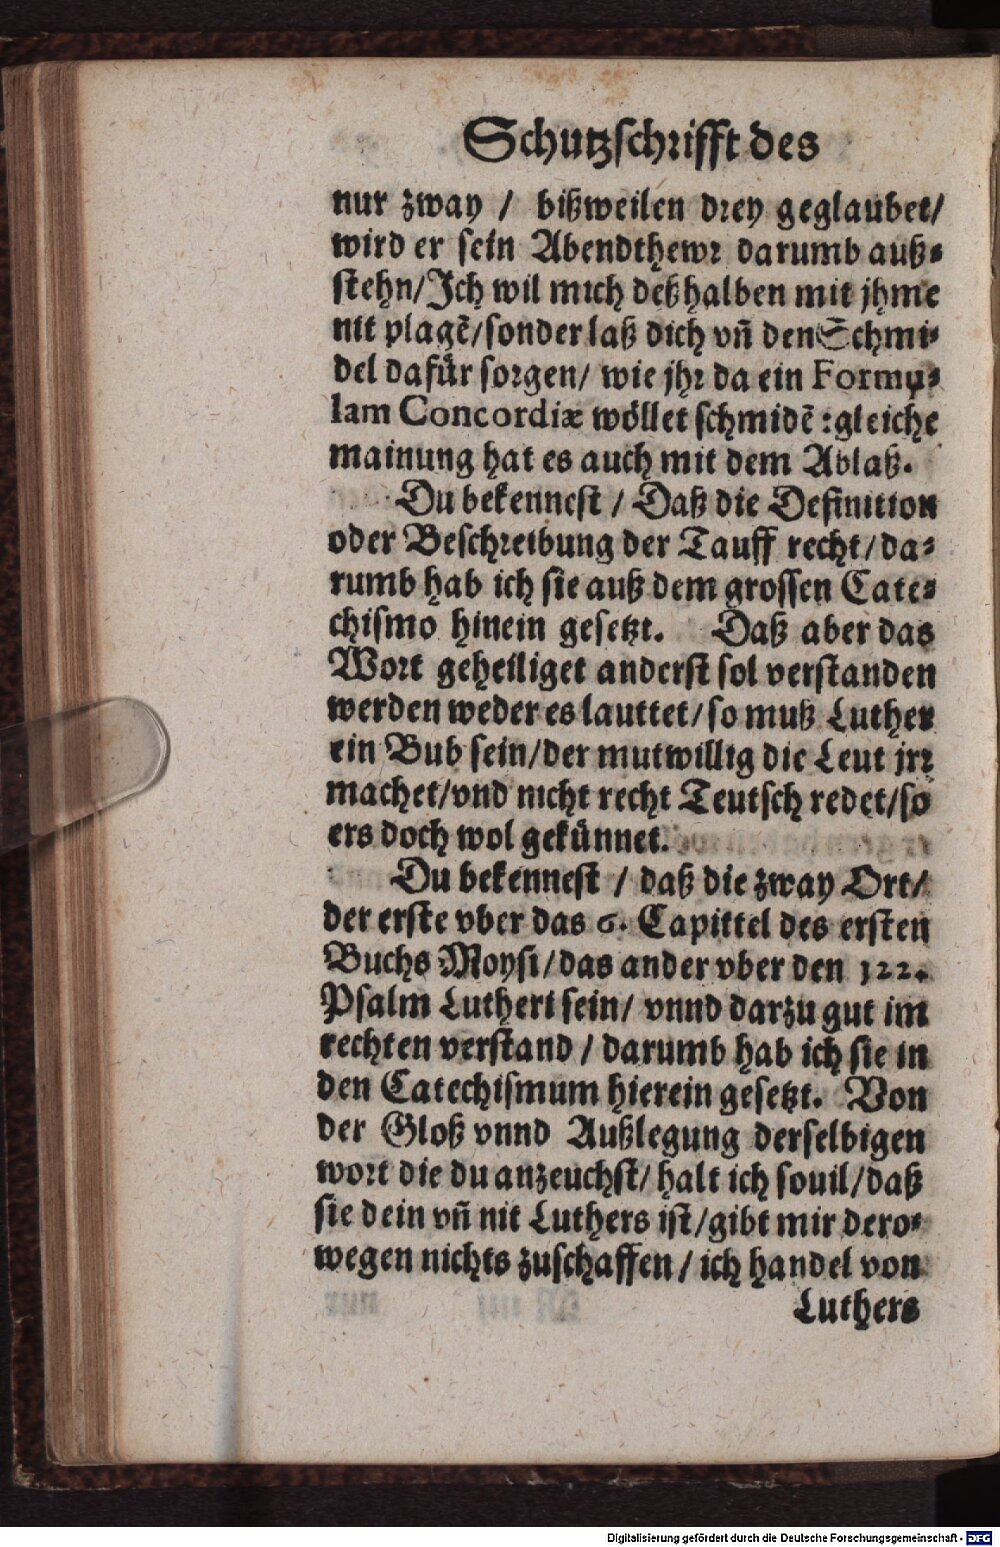 Schutzschrifft des
nur zway / bißweilen drey geglaubet/
wird er sein Abendthewr darumb auß⸗
stehn/Ich wil mich deßhalben mit jhme
nit plagẽ/sonder laß dich vñ den Schmi⸗
del dafür sorgen/ wie jhr da ein Formu⸗
lam Concordiæ wöllet schmidẽ :gleiche
mainung hat es auch mit dem Ablaß.
Du bekennest / Daß die Definition
oder Beschreibung der Tauff recht/da⸗
rumb hab ich sie auß dem grossen Cate⸗
chismo hinein gesetzt. Daß aber das
Wort geheiliget anderst sol verstanden
werden weder es lauttet/so muß Luther
ein Bub sein/der mutwillig die Leut jrr
machet/vnd nicht recht Teutsch redet/so
ers doch wol gekünnet.
Du bekennest / daß die zway Ort/
der erste vber das 6. Capittel des ersten
Buchs Moysi/das ander vber den 122.
Psalm Lutheri sein/ vnnd darzu gut im
rechten verstand / darumb hab ich sie in
den Catechismum hierein gesetzt. Von
der Gloß vnnd Außlegung derselbigen
wort die du anzeuchst/ halt ich souil/daß
sie dein vñ nit Luthers ist/gibt mir dero⸗
wegen nichts zuschaffen / ich handel von
Luthers
Digitalisierung gefördert durch die Deutsche Forschungsgemeinschaft - DFG